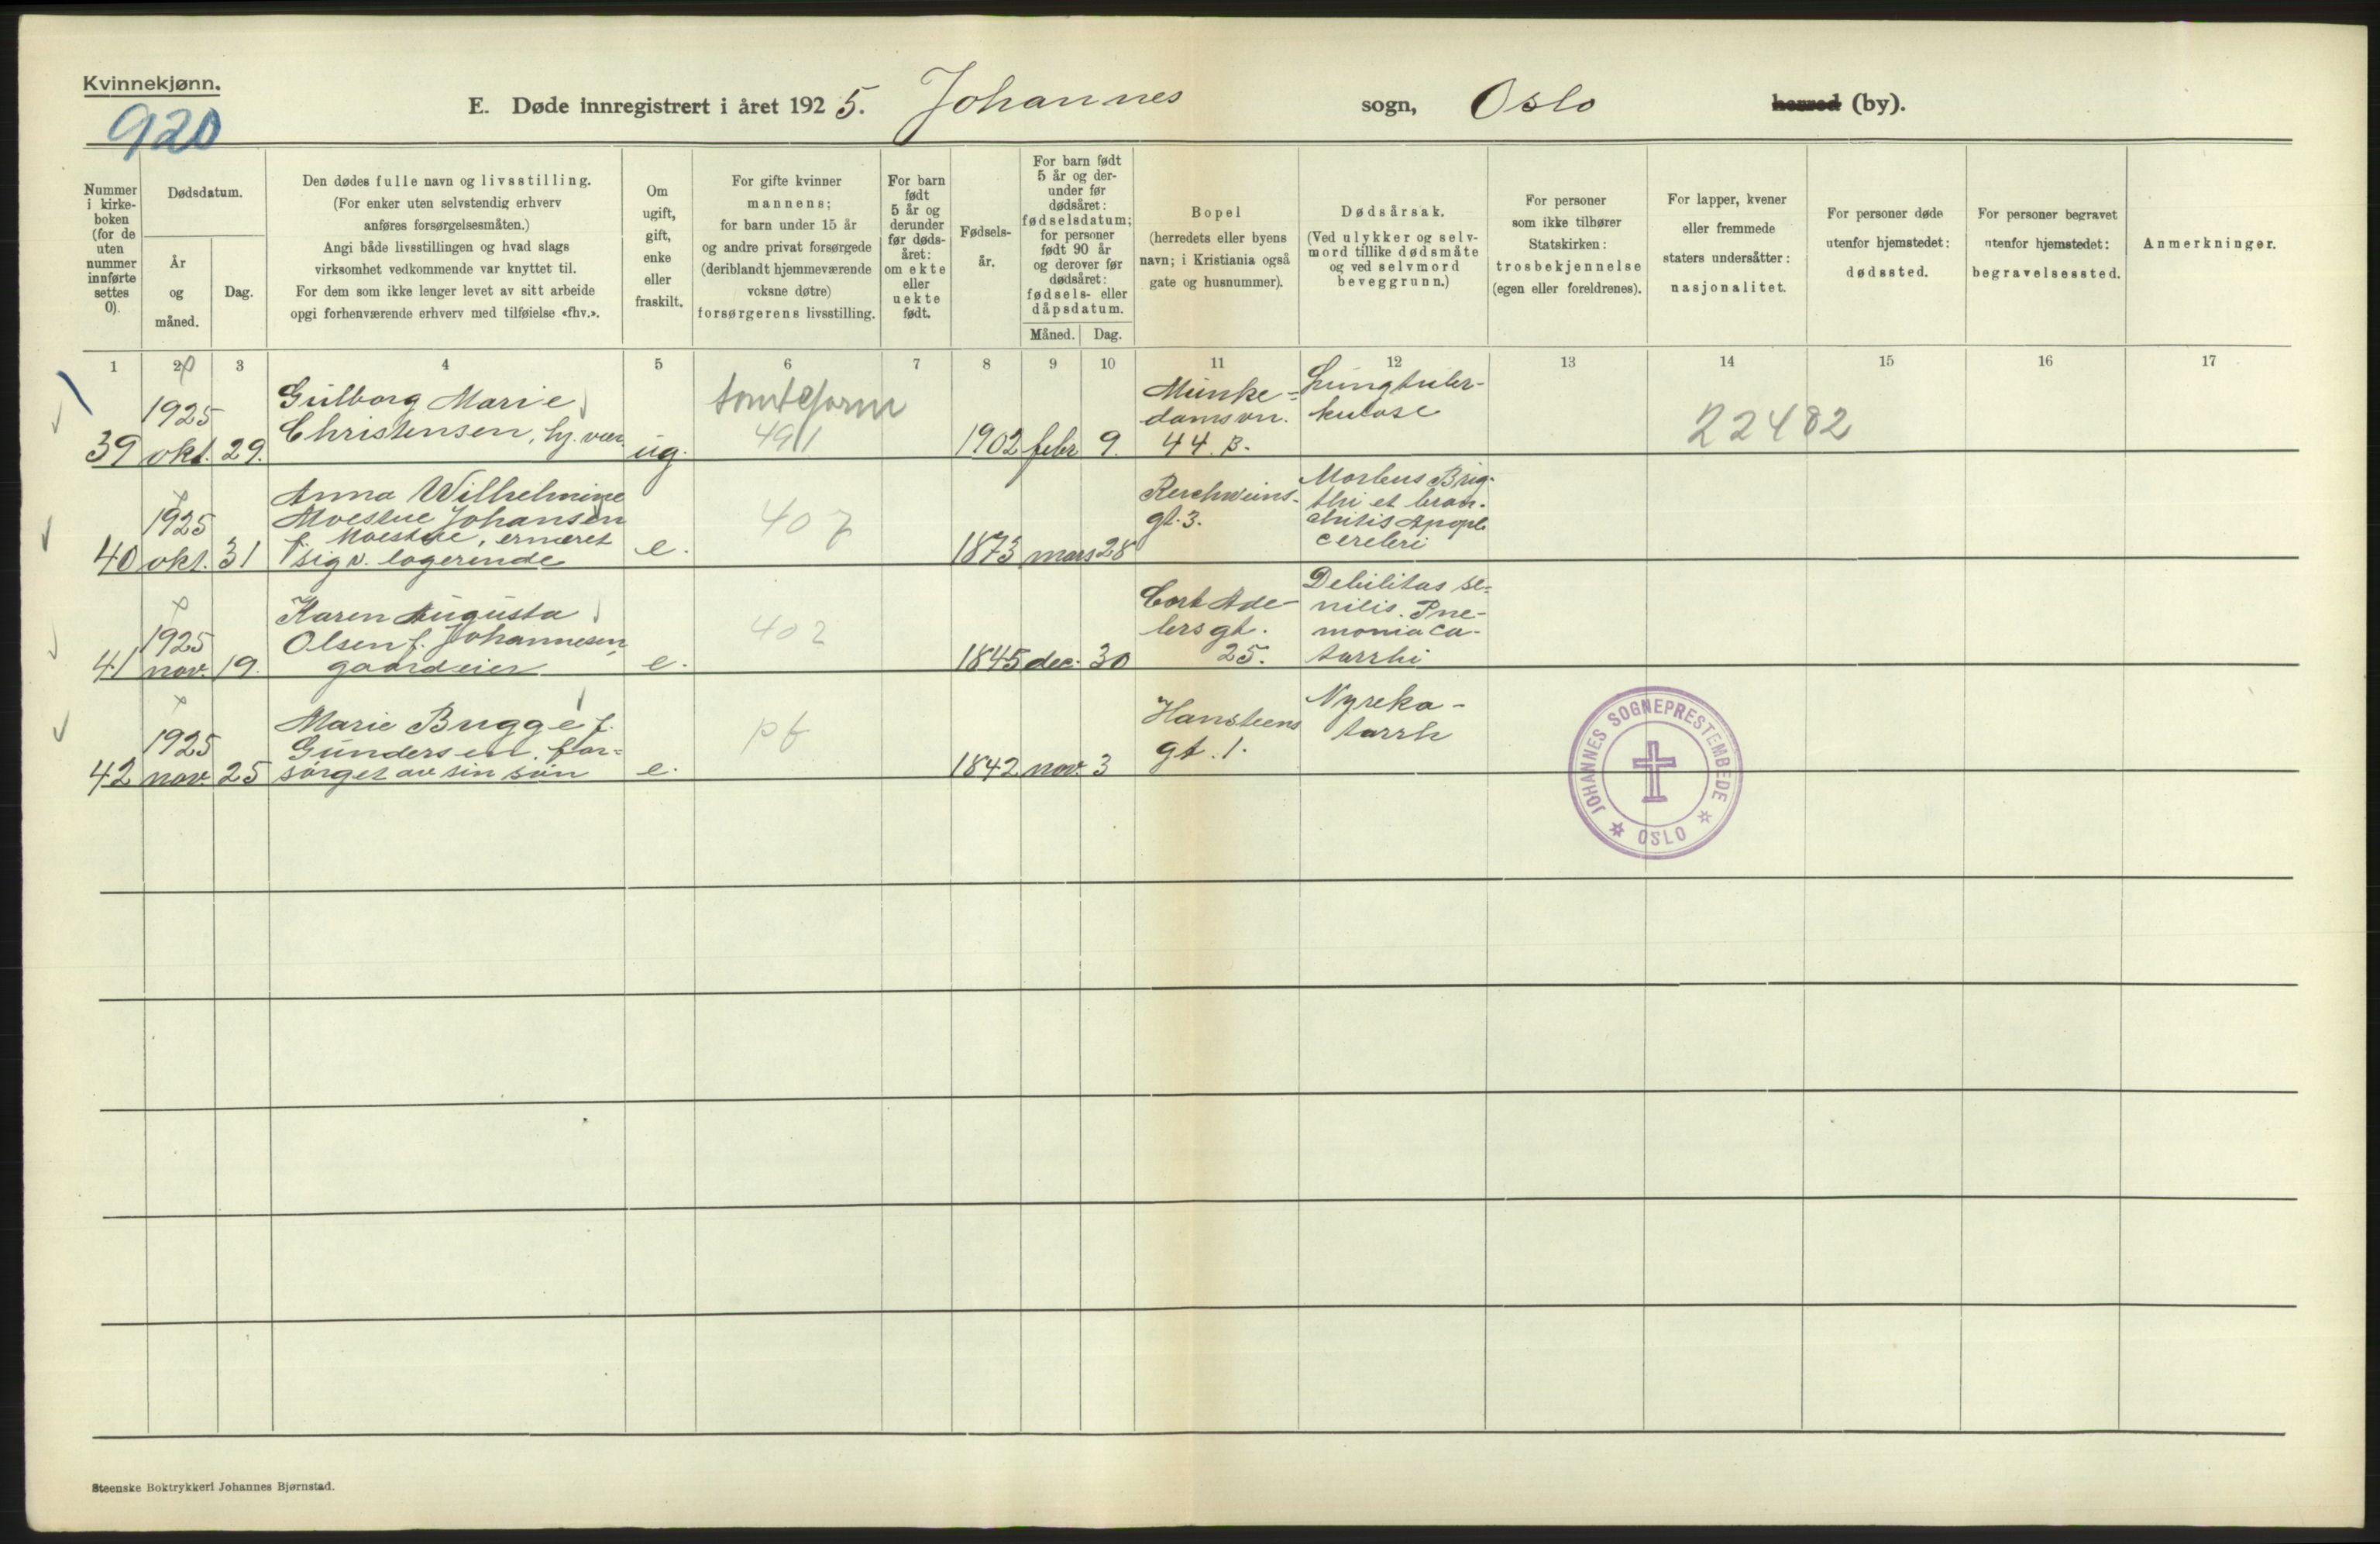 Kvinnekjønn.
920
E. Døde innregistrert i året 1925. Johannes sogn, Oslo herred (by).
Nummer
i kirke-
boken
(for de
uten
nummer
innførte
settes
0).
Dødsdatum.
År
og
måned.
Dag.
Den dødes fulle navn og livsstilling.
(For enker uten selvstendig erhverv
anføres forsørgelsesmåten.)
Angi både livsstillingen og hvad slags
virksomhet vedkommende var knyttet til.
For dem som ikke lenger levet av sitt arbeide
opgi forhenværende erhverv med tilføielse «fhv.».
Om
ugift,
gift,
enke
eller
fraskilt.
For gifte kvinner
mannens;
for barn under 15 år
og andre privat forsørgede
(deriblandt hjemmeværende
voksne døtre)
forsørgerens livsstilling.
For barn
født
5 år og
derunder
før døds-
året:
om ekte
eller
uekte
født.
Fødsels-
år.
For barn født
5 år og der-
under før
dødsåret:
fødselsdatum;
for personer
født 90 år
og derover før
dødsåret:
fødsels- eller
dåpsdatum.
Måned. Dag.
Bopel
(herredets eller byens
navn; i Kristiania også
gate og husnummer).
Dødsårsak.
(Ved ulykker og selv-
mord tillike dødsmåte
og ved selvmord
beveggrunn.)
For personer
som ikke tilhører
Statskirken:
trosbekjennelse
(egen eller foreldrenes).
For lapper, kvener
eller fremmede
staters undersåtter:
nasjonalitet.
For personer døde
utenfor hjemstedet:
dødssted.
For personer begravet
utenfor hjemstedet:
begravelsessted.
Anmerkninger.
1 2 3 4 5 6 7 8 9 10 11 12 13 14 15 16 17
39
1925
okt. 29.
Gulborg Marie
Christensen, hj. vær.
ug.
491
1902 febr 9.
Munke-
damsvn.
44. B.
Lungtuber-
kulose
22482
40
1925
okt. 31
Anna Wilhelmine
Moestue Johansen
f. Moestue, ernæret
sig v. logerende
e.
407
1873 mars 28
gt. 3.
Morbus Brig-
thi et bron-
chitis Apopl.
cerebri
41
1925
nov. 19.
Karen Augusta
Olsen f. Johannesen,
gaardeier
e.
402
1845 dec. 30
Cort Ade-
lers gt.
25.
Debilitas se-
nilis. Pne-
monia ca-
tarrhi
42
1925
nov. 25
Marie Bugge f.
Gundersen, for-
sørget av sin søn
e.
pf
1842 nov. 3
Hansteens
gt. 1.
Nyreka-
tarrh
JOHANNES SOGNEPRESTEMBEDE
OSLO
Steenske Boktrykkeri Johannes Bjørnstad.